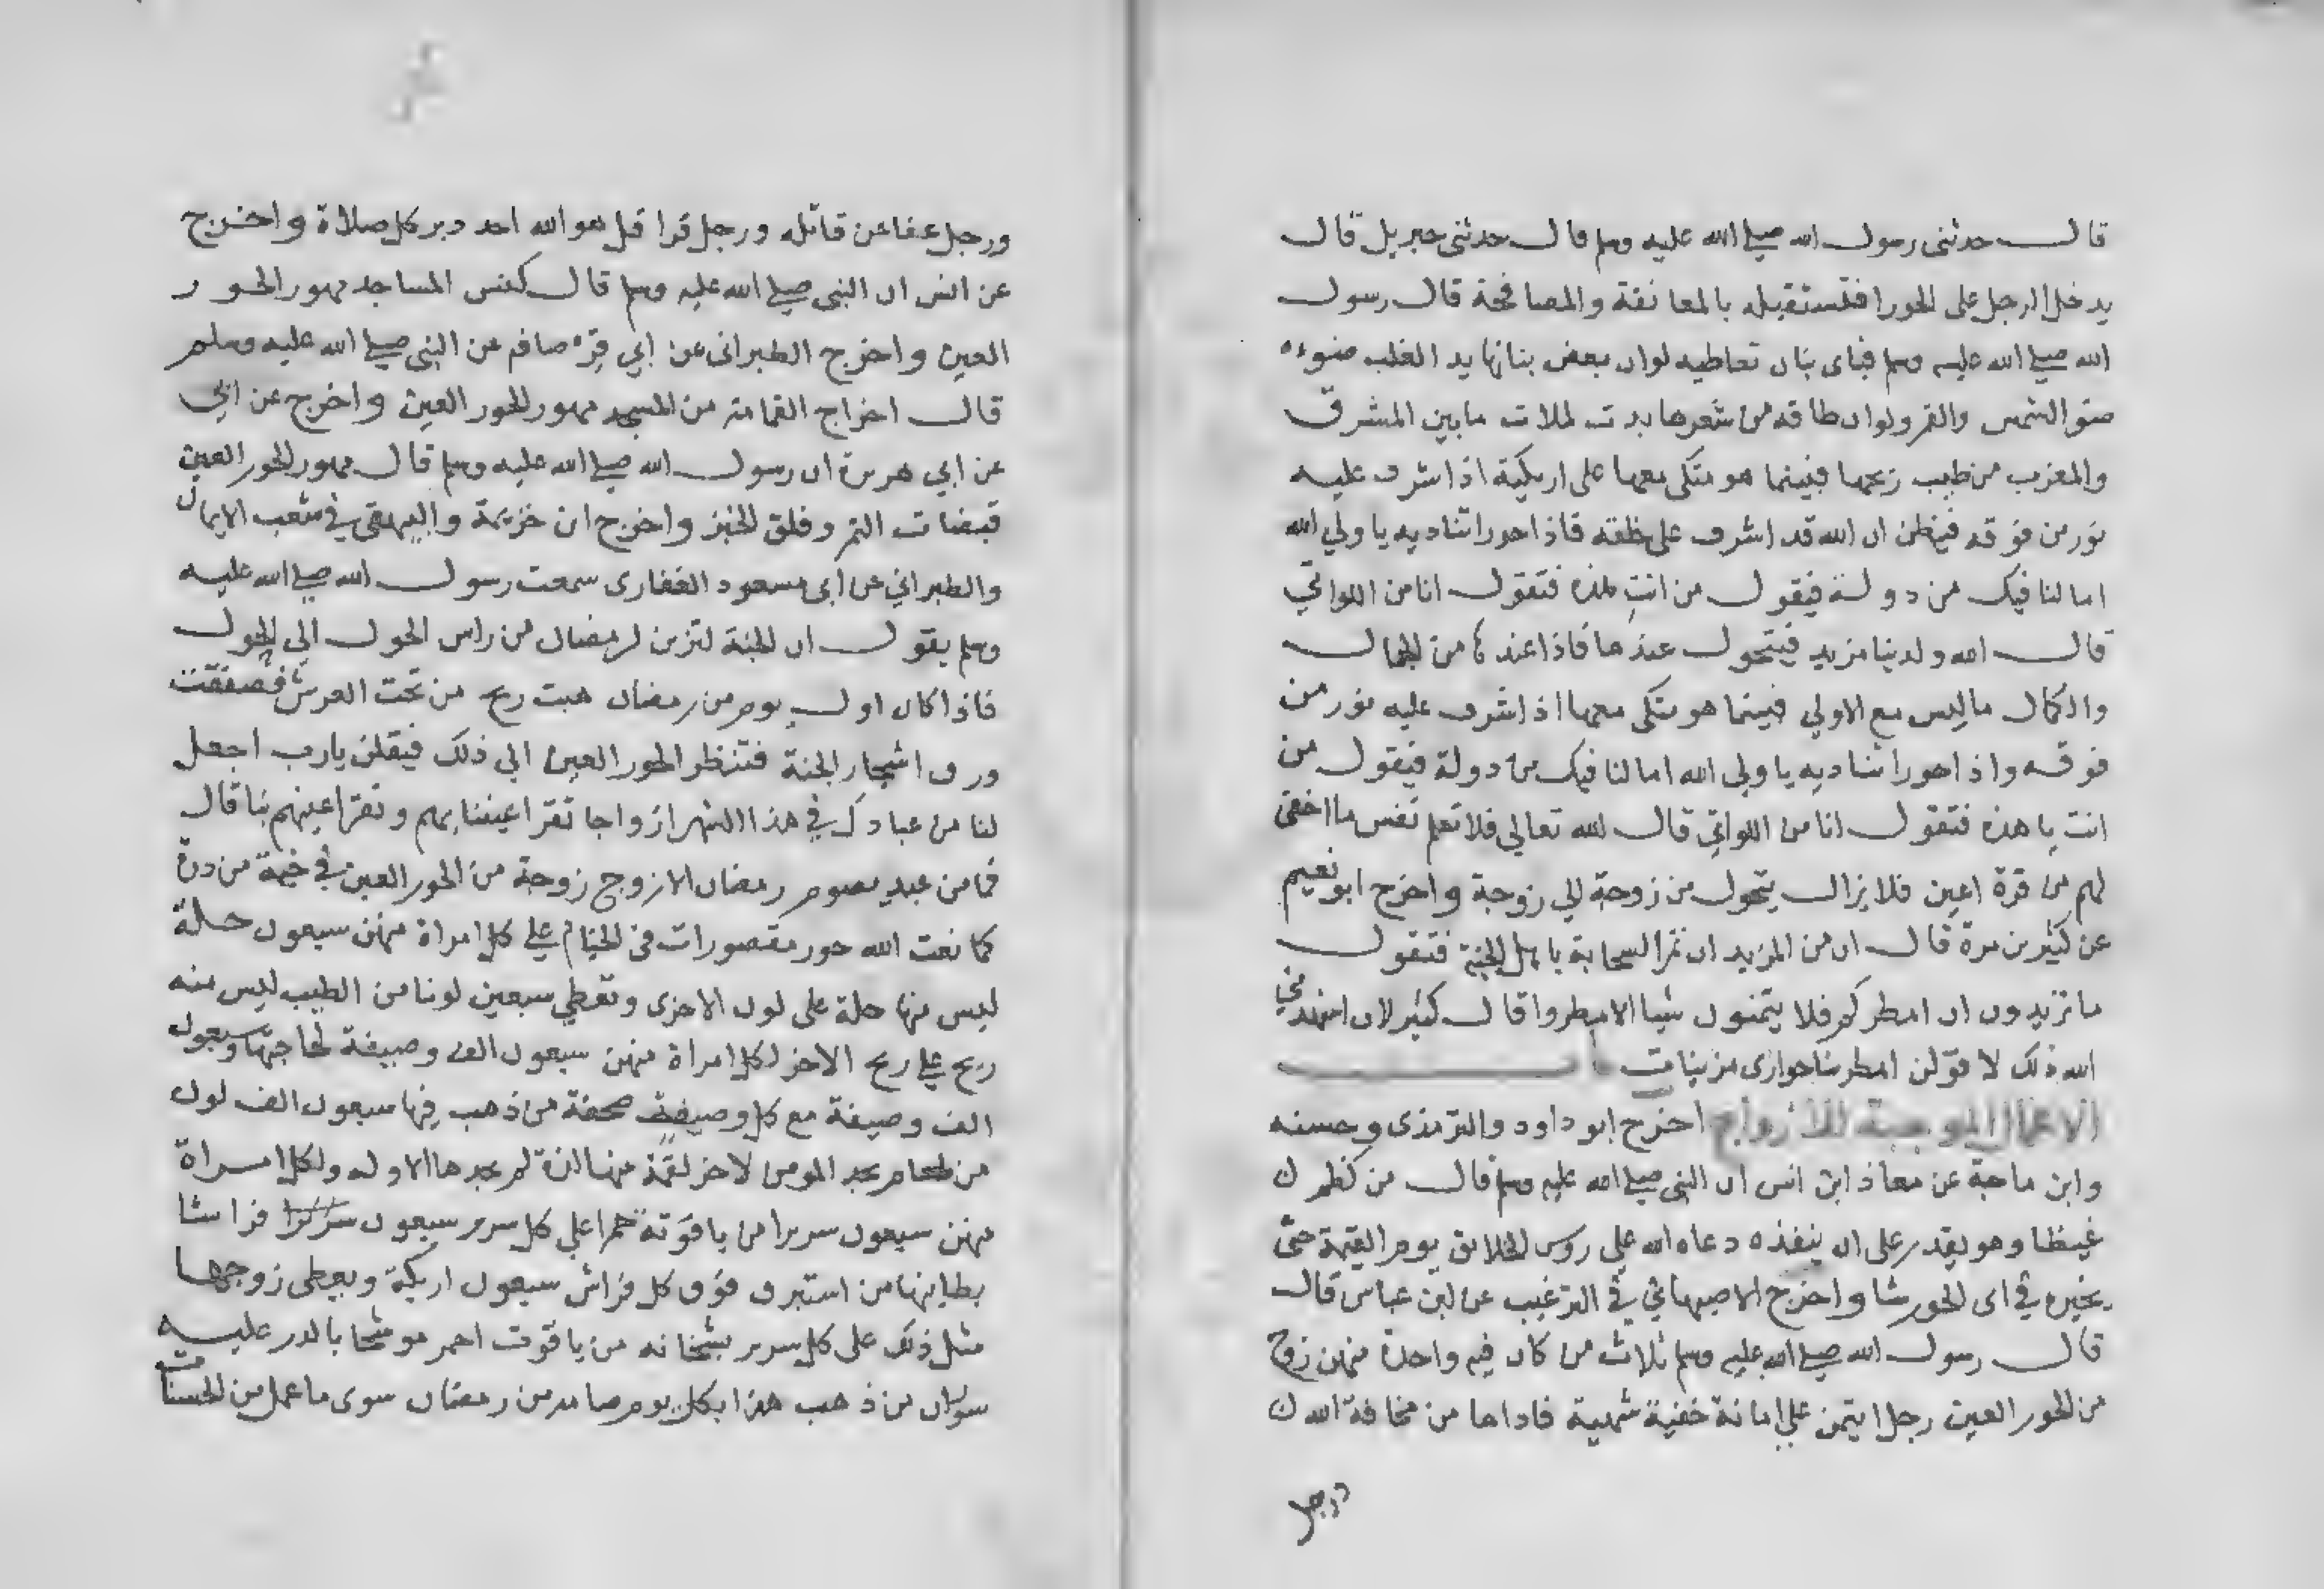 قال حدثنى رسول الله صلى الله عليه وسلم قال حدثنى جبريل قال
يدخل الرجل على الحورا فتستقبله بالمعانقة والمصافحة قال رسول
الله صلى الله عليه وسلم فباى بنان تعاطيه لوان بعض بنانها يد الغلب ضوءه
ضو الشمس والقمر ولوان طاقة من شعرها بدت لملات ما بين المشرق
والمغرب من طيب ريحها فبينما هو متكى معها على اريكية اذ اشرف عليه
نور من فوقه فيظن ان الله قد اشرف على خلقه فاذا حورا تناديه يا ولي الله
اما لنا فيك من دولة فيقول من انتِ هذه فتقول انا من اللواتي
قال الله ولدينا مزيد فيتحول عندها فاذا عندها من الجمال
والكمال ما ليس مع الاولي فبينما هو متكى معها اذ اشرف عليه نور من
فوقه واذا حورا تناديه يا ولى الله اما لنا فيك من دولة فيقول من
انت يا هذه فتقول انا من اللواتي قال الله تعالي فلا تعلم نفس ما اخفى
لهم من قرة اعين فلا يزال يتحول من زوجة الي زوجة واخرج ابو نعيم
عن كثير بن مرة قال ان من المزيد ان تمر السحابة باهل الجنة فتقول
ما تريدون ان امطركم فلا يتمنون شيا الا امطروا قال كثير لان اشهدني
الله ذلك لا قولن امطرينا جوارى مزينات
الاعمال الموجبة للازواج اخرج ابو داود والترمذى وحسنه
وابن ماجة عن معاذ ابن انس ان النبى صلى الله عليه وسلم قال من كظم ك
غيظا وهو يقدر على ان ينفذه دعاه الله علي روس الخلايق يوم القيمة حتى
يخيره في اى الحور شا واخرج الاصبهاني في الترغيب عن ابن عباس قال
قال رسول الله صلى الله عليه وسلم ثلاث من كان فيه واحدة منهن زوج
من الحور العين رجل ايتمن علي امانة خفية شهية فاداها من مخافة الله ك
ورجل
ورجل عفا عن قاتله ورجل قرا قل هو الله احد دبر كل صلاة واخرج
عن انس ان النبى صلى الله عليه وسلم قال كنس المساجد مهور الحور
العين واخرج الطبرانى عن ابي قرصافه عن النبى صلى الله عليه وسلم
قال اخراج القمامة من المسجد مهور الحور العين واخرج عن ابي
عن ابي هريرة ان رسول الله صلى الله عليه وسلم قال مهور الحور العين
قبضات التمر وفلق الخبز واخرج ابن خزيمة والبيهقى في شعب الايمان
والطبراني عن ابى مسعود الغفارى سمعت رسول الله صلى الله عليه
وسلم يقول ان الجنة لتزين لرمضان من راس الحول الى الحول
فاذا كان اول يوم من رمضان هبت ريح من تحت العرش فصفقت
ورق اشجار الجنة فتنظر الحور العين الي ذلك فيقلن يا رب اجعل
لنا من عبادك في هذا الشهر ازواجا تقر اعيننا بهم وتقر اعينهم بنا قال
فما من عبد يصوم رمضان الا زوج زوجة من الحور العين في خيمة من درة
كما نعت الله حور مقصورات في الخيام علي كل امراة منهن سبعون حلة
ليس منها حلة على لون الاخرى وتعطي سبعين لونا من الطيب ليس منه
ريح علي ريح الاخر لكل امراة منهن سبعون الف وصيفة لحاجتها وسبعون
الف وصيفة مع كل وصيفة صحفة من ذهب فيها سبعون الف لون
من طعام يجد المومن لاخر لقمة منها لذة لم يجدها لاوله ولكل امراة
منهن سبعون سريرا من ياقوتة حمرا علي كل سرير سبعون سريرا فراشا
بطاينها من استبرق فوق كل فراش سبعون اريكة ويعطى زوجها
مثل ذلك على كل سرير بشخانه من ياقوت احمر موشحا بالدر عليه
سواران من ذهب هذا بكل يوم صامه من رمضان سوى ما عمل من الحسنات